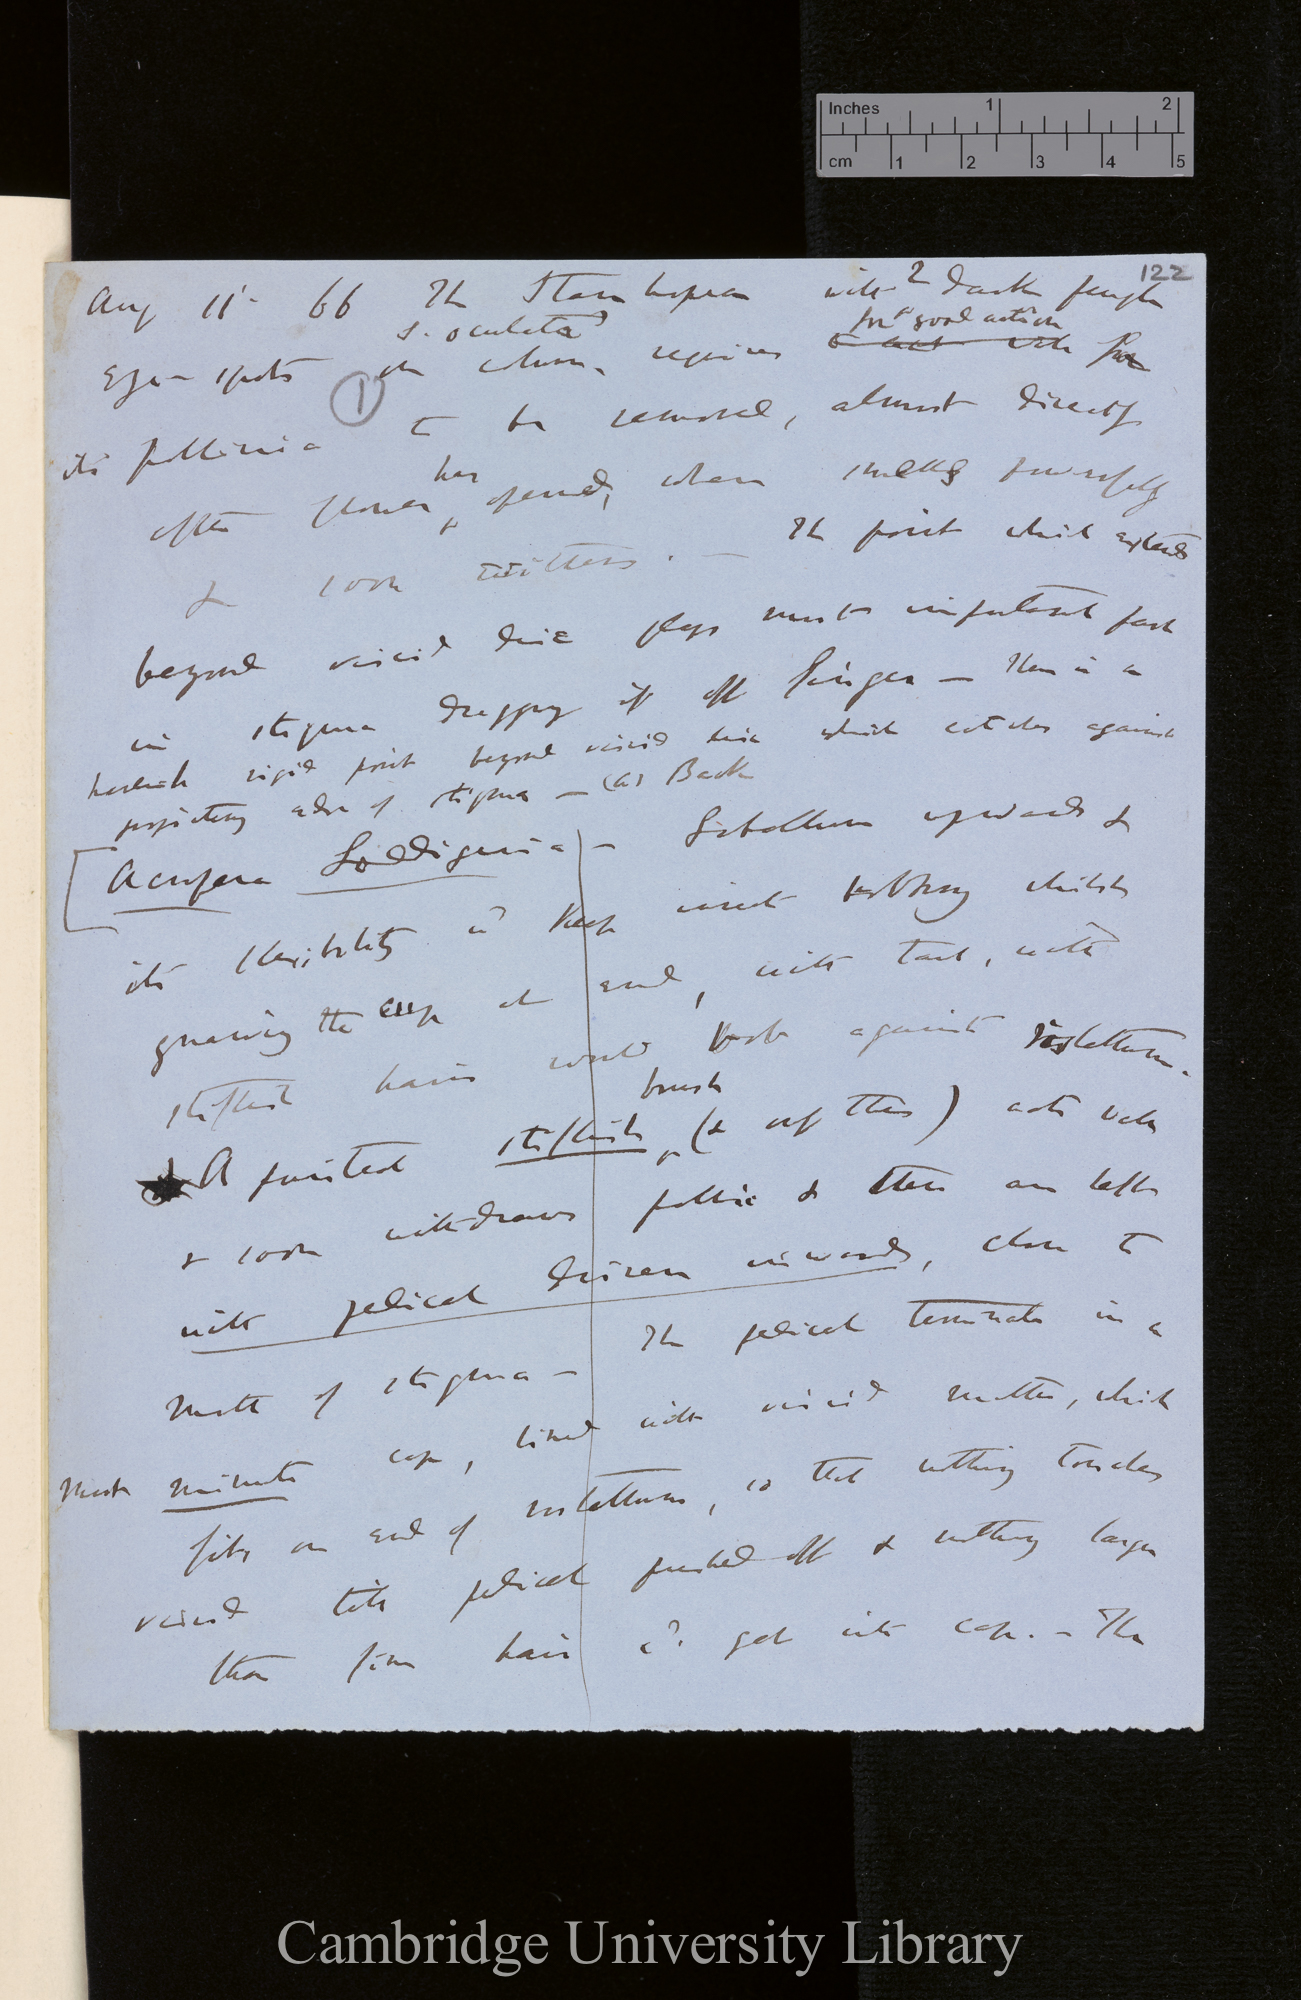 Inches 1 2
cm 1 2 3 4 5
122
Aug 11. 66 The Stanhopea with 2 dark purple
S. oculata? for good action
Eye-spots on column, requires for
①
its pollinia to be removed, almost directly
has
after flower opened, when smells powerfully
& soon withers. — The point which extends
beyond viscid disc plays most important part
in stigma dragging it off finger — There is a
rigid point beyond viscid disc which catches against
projecting edge of stigma — (a) Back
[Acropera Loddigesii — Labellum upwards &
its flexibility wd keep insect bobbing whilst
gnawing the cup at end, with tail, with
stiffish hairs would bob against rostellum.
brush
A pointed stiffish (& only this) acts well
& soon withdraws pollinia & then are left
with pedicel driven inwards, close to
mouth of stigma — The pedicel terminates in a
most minute cap, lined with viscid matter, which
fits on end of rostellum, so that nothing touches
viscid till pedicel pushed off & nothing larger
than fine hair cd. get into cap. — The
Cambridge University Library